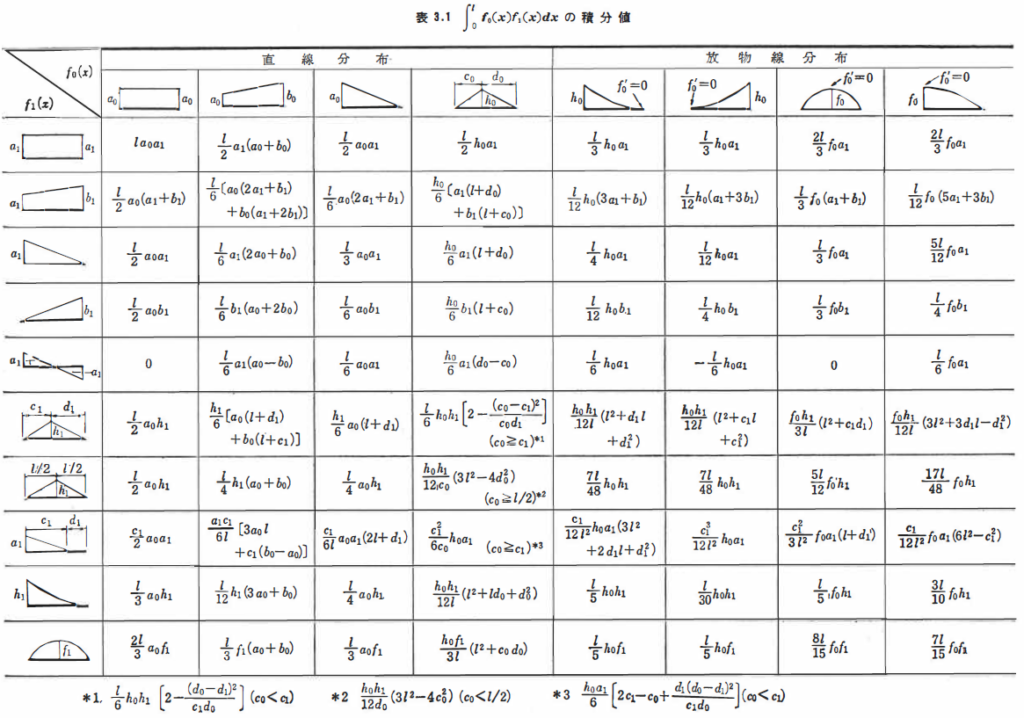 表 3.1 ∫₀ˡ f₀(x)f₁(x)dx の積分値
f₀(x) 直線分布 放物線分布
f₁(x) a₀ a₀ a₀ b₀ a₀ c₀ d₀ h₀ h₀ f₀′=0 f₀′=0 h₀ f₀′=0 f₀ f₀′=0 f₀
a₁ a₁ la₀a₁ l/2 a₁(a₀+b₀) l/2 a₀a₁ l/2 h₀a₁ l/3 h₀a₁ l/3 h₀a₁ 2l/3 f₀a₁ 2l/3 f₀a₁
a₁ b₁ l/2 a₀(a₁+b₁) l/6 [a₀(2a₁+b₁) +b₀(a₁+2b₁)] l/6 a₀(2a₁+b₁) h₀/6 [a₁(l+d₀) +b₁(l+c₀)] l/12 h₀(3a₁+b₁) l/12 h₀(a₁+3b₁) l/3 f₀(a₁+b₁) l/12 f₀(5a₁+3b₁)
a₁ l/2 a₀a₁ l/6 a₁(2a₀+b₀) l/3 a₀a₁ h₀/6 a₁(l+d₀) l/4 h₀a₁ l/12 h₀a₁ l/3 f₀a₁ 5l/12 f₀a₁
b₁ l/2 a₀b₁ l/6 b₁(a₀+2b₀) l/6 a₀b₁ h₀/6 b₁(l+c₀) l/12 h₀b₁ l/4 h₀b₁ l/3 f₀b₁ l/4 f₀b₁
a₁ −a₁ 0 l/6 a₁(a₀−b₀) l/6 a₀a₁ h₀/6 a₁(d₀−c₀) l/6 h₀a₁ −l/6 h₀a₁ 0 l/6 f₀a₁
c₁ d₁ h₁ l/2 a₀h₁ h₁/6 [a₀(l+d₁) +b₀(l+c₁)] h₁/6 a₀(l+d₁) l/6 h₀h₁[2−(c₀−c₁)²/c₀d₁] (c₀≧c₁)*1 h₀h₁/12l (l²+d₁l +d₁²) h₀h₁/12l (l²+c₁l +c₁²) f₀h₁/3l (l²+c₁d₁) f₀h₁/12l (3l²+3d₁l−d₁²)
l/2 l/2 h₁ l/2 a₀h₁ l/4 h₁(a₀+b₀) l/4 a₀h₁ h₀h₁/12c₀ (3l²−4d₀²) (c₀≧l/2)*2 7l/48 h₀h₁ 7l/48 h₀h₁ 5l/12 f₀h₁ 17l/48 f₀h₁
c₁ d₁ a₁ c₁/2 a₀a₁ a₁c₁/6l [3a₀l +c₁(b₀−a₀)] c₁/6l a₀a₁(2l+d₁) c₁²/6c₀ h₀a₁ (c₀≧c₁)*3 c₁/12l² h₀a₁(3l² +2d₁l+d₁²) c₁³/12l² h₀a₁ c₁²/3l² f₀a₁(l+d₁) c₁/12l² f₀a₁(6l²−c₁²)
h₁ l/3 a₀h₁ l/12 h₁(3a₀+b₀) l/4 a₀h₁ h₀h₁/12l (l²+ld₀+d₀²) l/5 h₀h₁ l/30 h₀h₁ l/5 f₀h₁ 3l/10 f₀h₁
f₁ 2l/3 a₀f₁ l/3 f₁(a₀+b₀) l/3 a₀f₁ h₀f₁/3l (l²+c₀d₀) l/5 h₀f₁ l/5 h₀f₁ 8l/15 f₀f₁ 7l/15 f₀f₁
*1, l/6 h₀h₁ [2−(d₀−d₁)²/c₁d₀] (c₀<c₁) *2 h₀h₁/12d₀ (3l²−4c₀²) (c₀<l/2) *3 h₀a₁/6 [2c₁−c₀+d₁(d₀−d₁)²/c₁d₀](c₀<c₁)